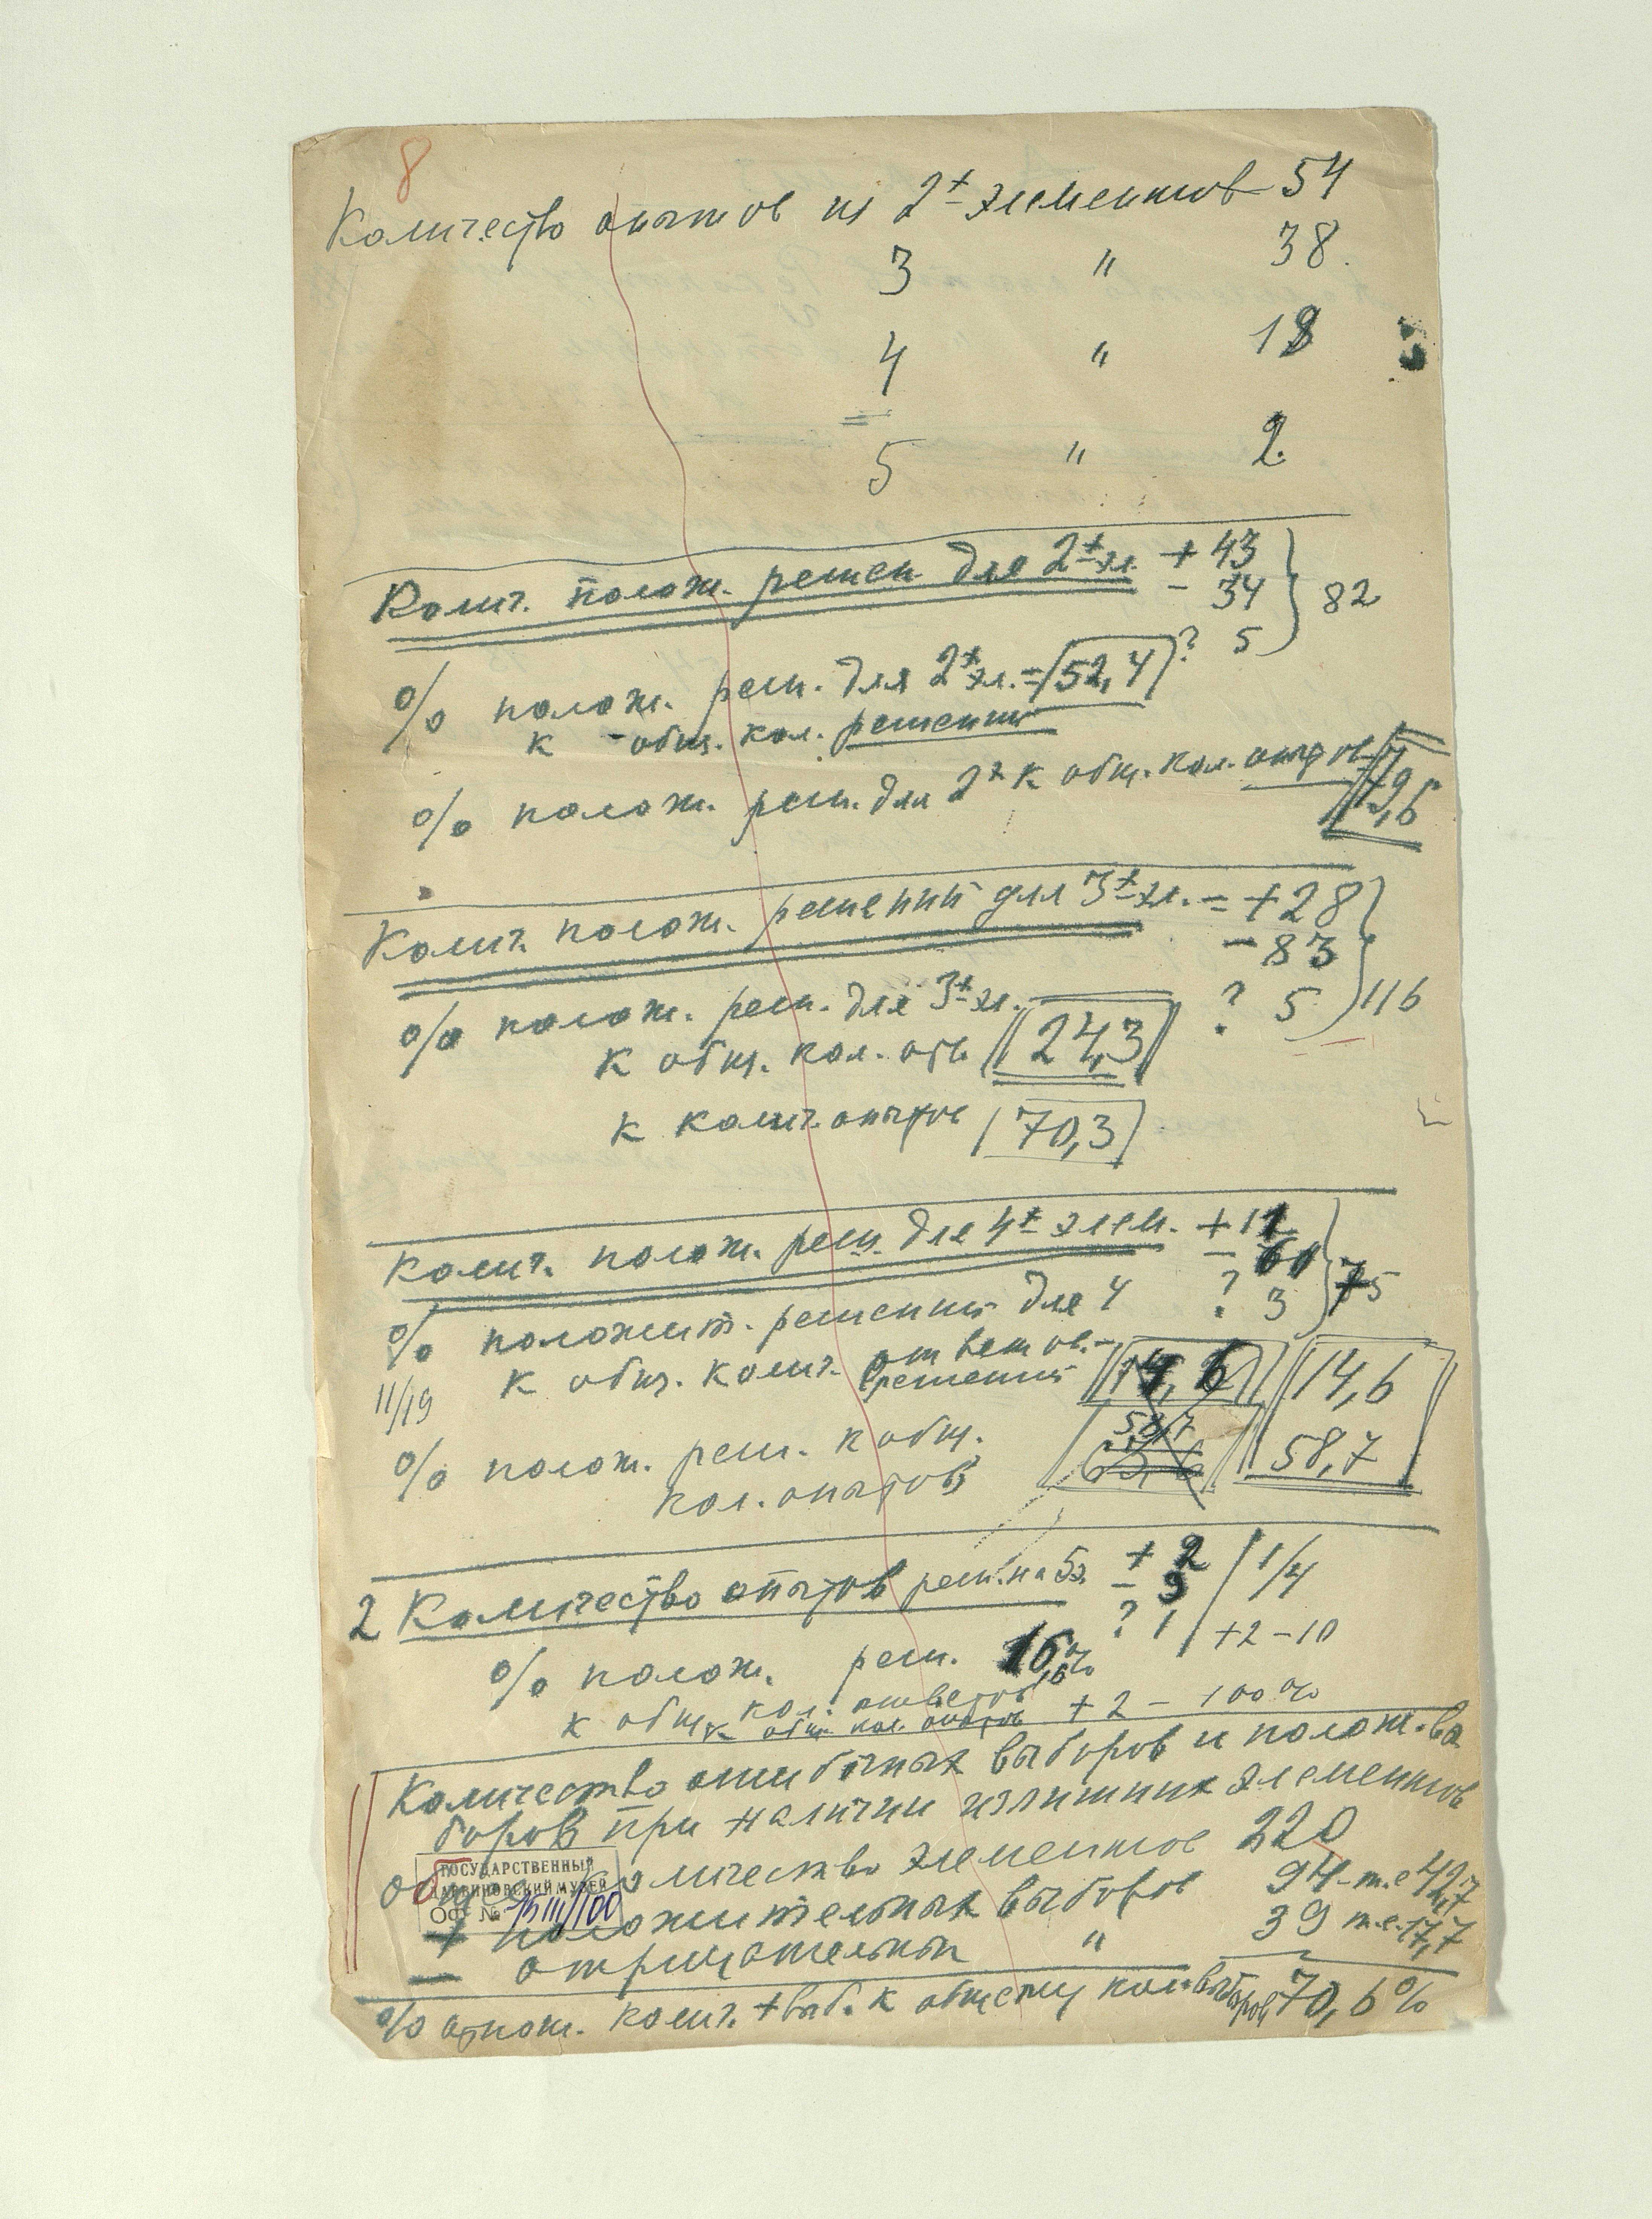 8
Количество опытов из 2х элементов 54
3 " 38.
4 " 18
5 " 2.
Колич. полож. решен для 2х эл. + 43
- 34 } 82
? 5
% полож. реш. для 2х эл. = 52,4
к общ. кол. решений
% полож. реш. для 2х к общ. кол. опытов 79,6
Колич. полож. решений для 3х эл. = + 28
- 83
? 5 } 116
% полож. реш. для 3х эл.
к общ. кол. отв. 24,3
к колич. опытов 70,3
Колич. полож. реш. для 4х элем. + 11
- 61
? 3 } 75
% положит. решений для 4
к общ. колич. ответов -
решений 14,6 14,6
11/19
% полож. реш. к общ. 58,7
кол. опытов 58,7
2 Количество опытов реш. на 5 э. + 2
- 9 1/4
? 1 +2 - 10
% полож. реш. 16,6%
к общ. кол. ответов
к общ. кол. опытов +2 - 100%
Количество ошибочных выборов и полож. вы
боров при наличии излишних элементов
Общее количество элементов 220
+ положительных выборов 94 - т.е 42,7
- отрицательных " 39 т.е. 17,7
% отнош. колич. + выб. к общему кол. выборов 70,6%
ГОСУДАРСТВЕННЫЙ
ДАРВИНОВСКИЙ МУЗЕЙ
ОФ №